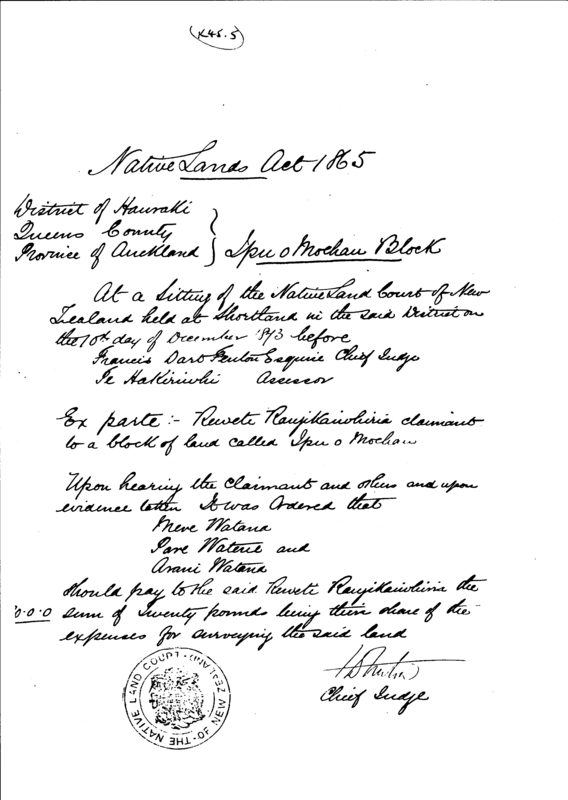 (K45.5)
Native Lands Act 1865
District of Hauraki
Queens County
Province of Auckland } Ipu o Moehau Block
At a Sitting of the Native Land Court of New
Zealand held at Shortland in the said District on
the 10th day of December 1873 before
Francis Dart Fenton Esquire Chief Judge
Te Hakiriwhi Assessor
Ex parte :- Reweti Rangikaiwhiria claimant
to a block of land called Ipu o Moehau
Upon hearing the claimant and others and upon
evidence taken It was Ordered that
Mere Watana
Pare Waterie and
Arani Watana
should pay to the said Reweti Rangikaiwhiria the
sum of Twenty pounds being their share of the
0.0.0
expenses for surveying the said land
Chief Judge
THE NATIVE LAND COURT OF NEW ZEALAND